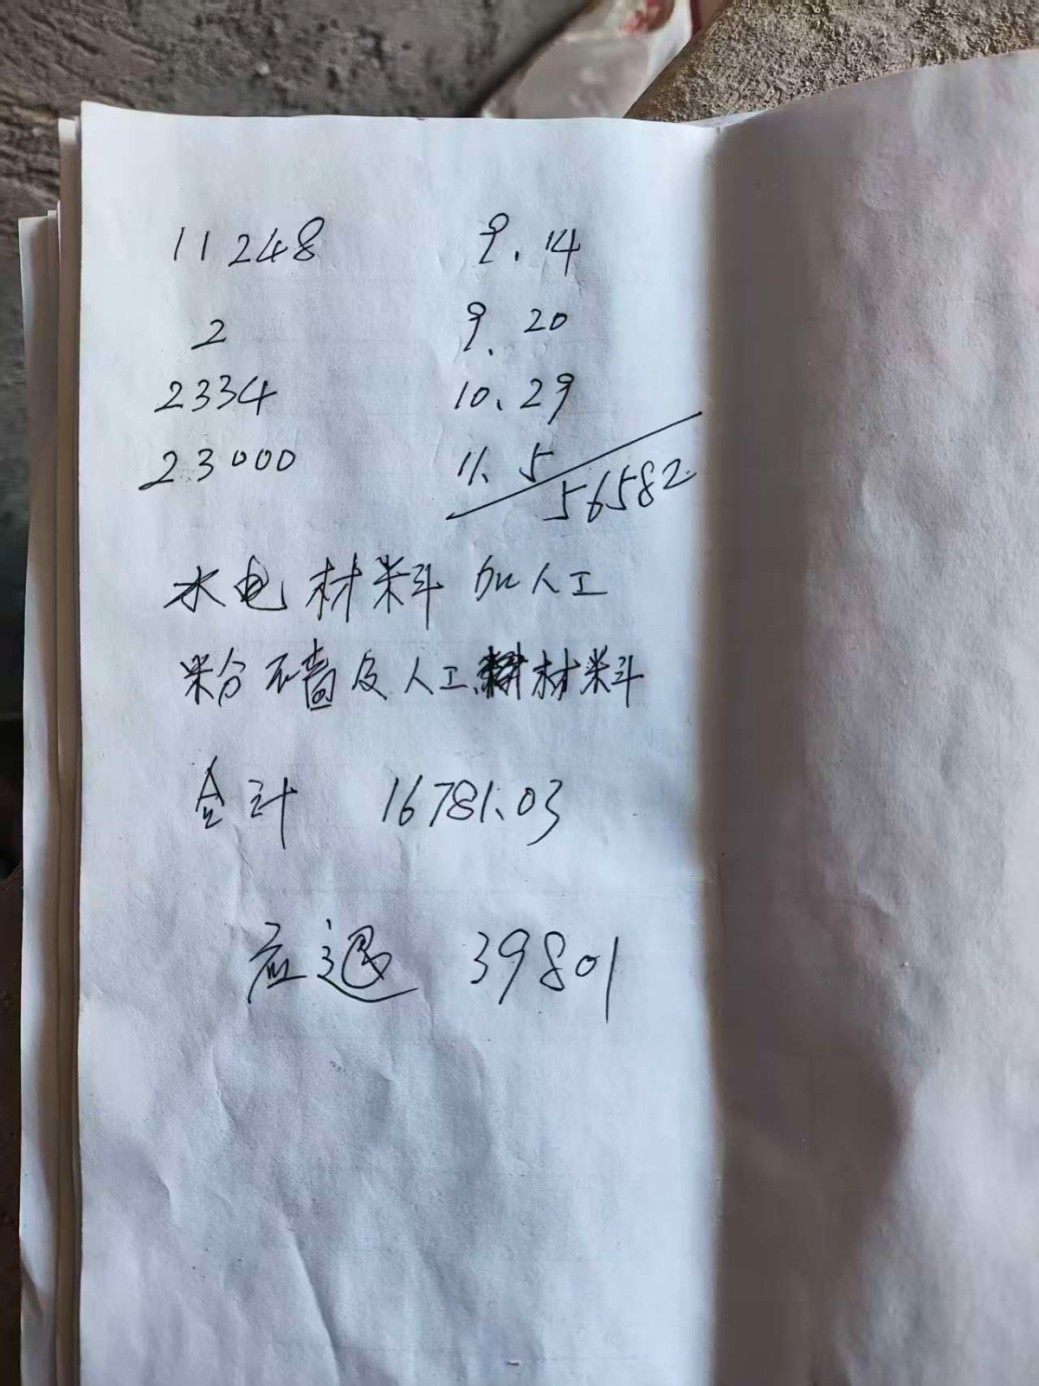 11248 9.14
2 9.20
2334 10.29
23000 11.5
56582
水电材料加人工
粉墙及人工材料
合计 16781.03
应退 39801